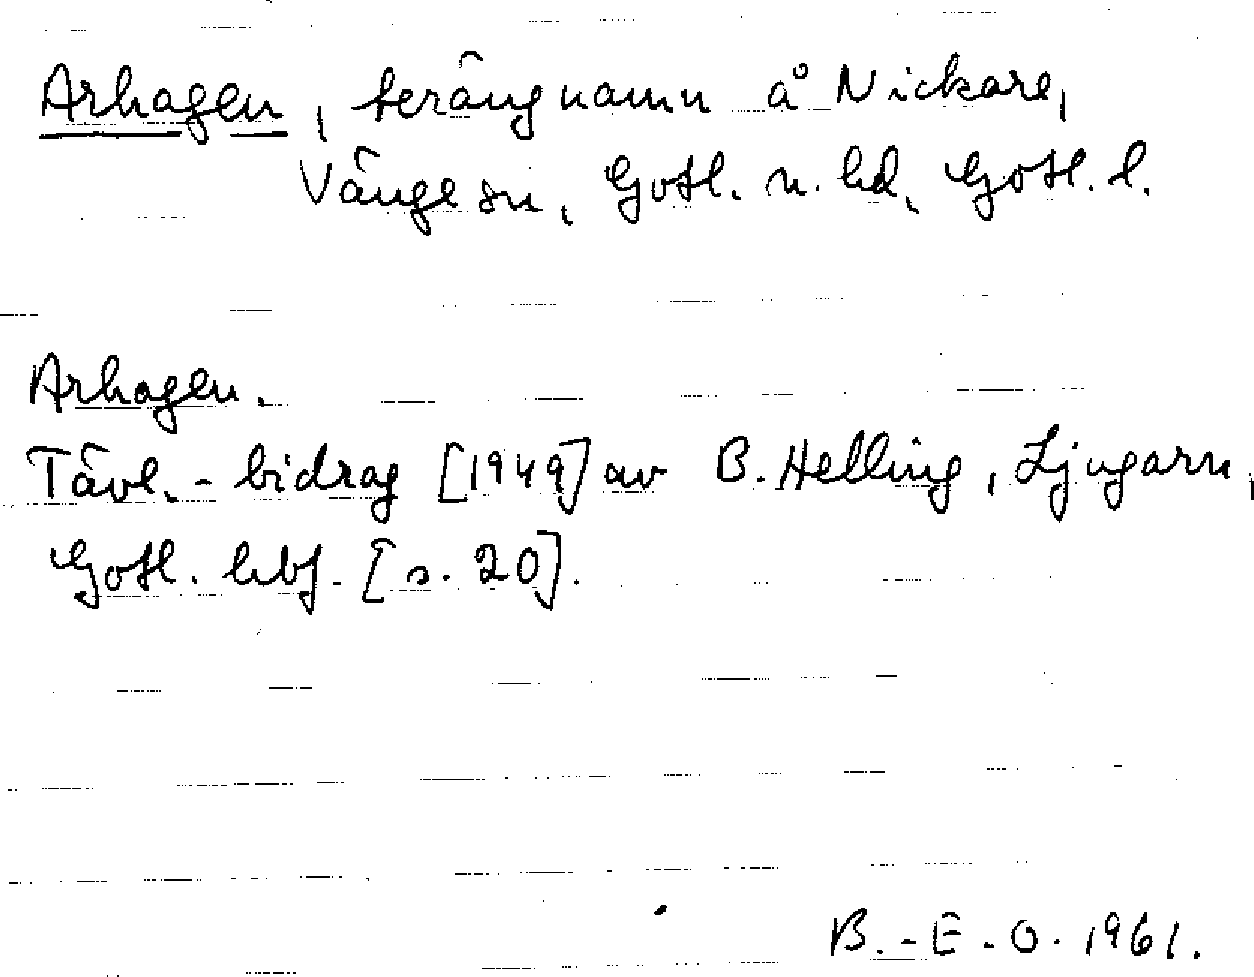 Arhagen, terängnamn å Nickare,
Vänge sn, Gotl. n. hd, Gotl. l.
Arhagen.
Tävl.-bidrag [1949] av B. Helling, Ljugarn,
Gotl. hbf. [s. 20].
B.-E. O. 1961.